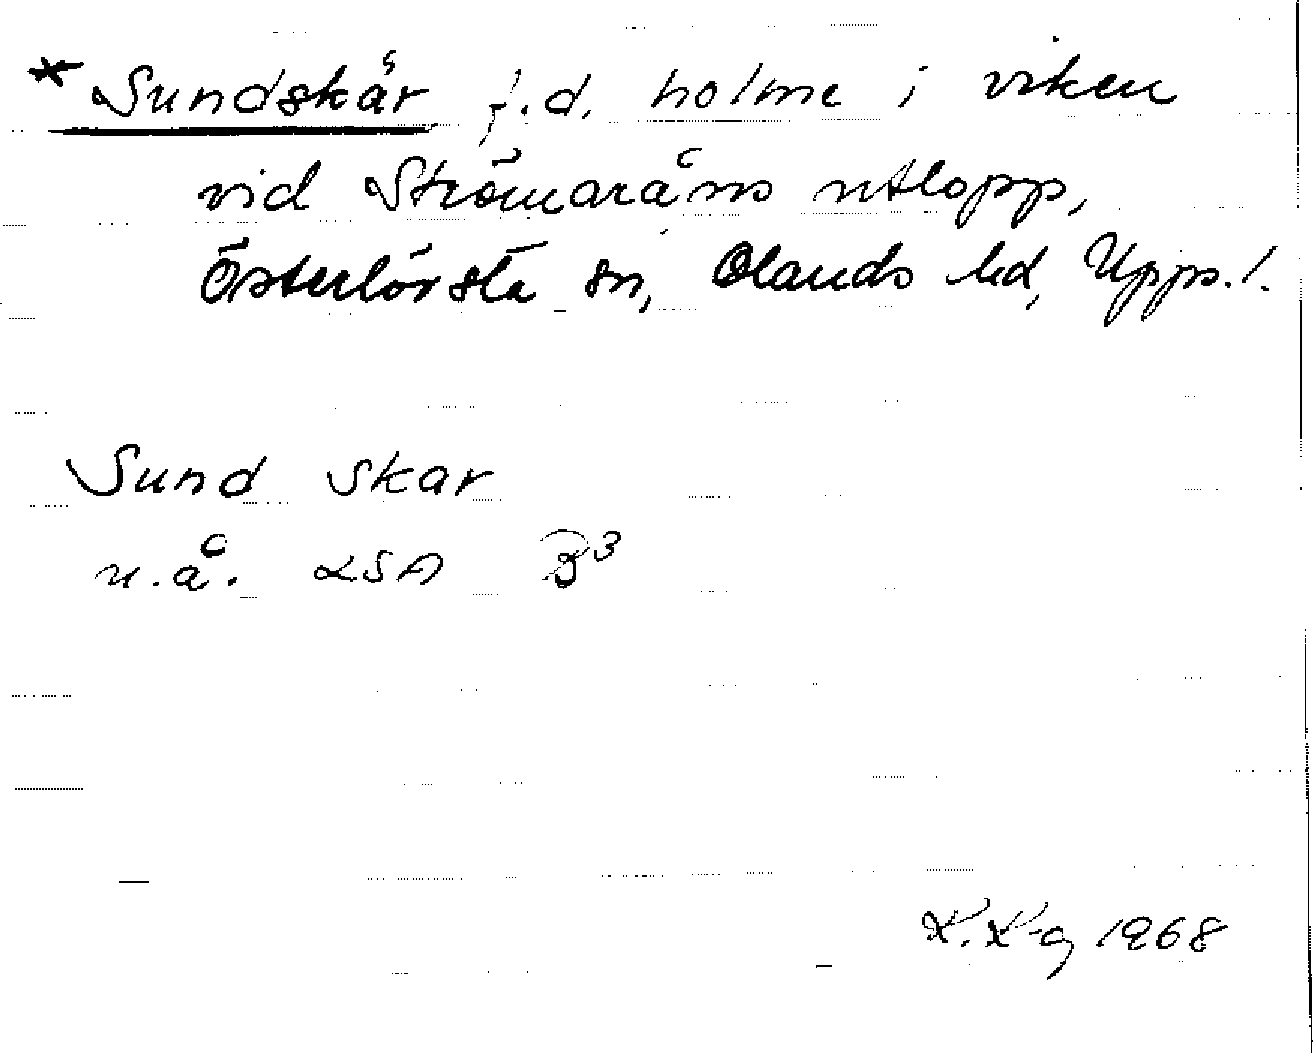 *Sundskär f.d. holme i viken
vid Strömaråns utlopp,
Österlövsta sn, Olands hd, Upps. l.
Sund skar
u.å. LSA B3
K. K-g 1968